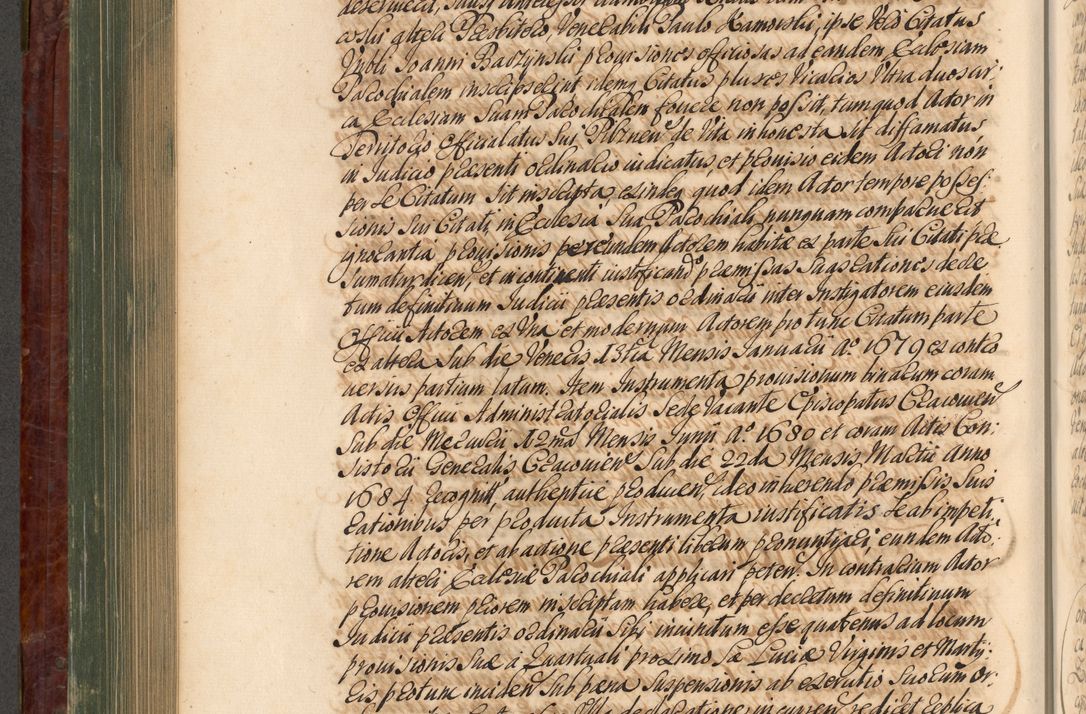 coslii alteri Presbitero Venerabili Paulo Kamorski, ipse vero Citatus
Vnbli Joanni Baczynski prouisiones officiosas ad eandem Ecclesiam
Parochialem inscripserint idemq Citatus plures Vicarios Vltra duos cir
ca Ecclesiam suam Parochialem fouere non possit, tum quod Actor in
Territorio Officialatus sui Pilznen de Vita inhonesta sit diffamatus,
in Iudicio praesenti ordinario iudicatus, et prouisio eidem Actori non
per se Citatum sit inscripta, exindeq quod idem Actor tempore posses
sionis sui Citati, in Ecclesia sua Parochiali nunquam comparuerit
ignorantia prouisionis per eundem Actorem habitae ex parte sui Citati prae
sumatur dicen, et in continenti iustificando praemissas suas rationes decre
tum definitiuum Iudicii praesentis ordinarii inter Instigatorem eiusdem
Officii Actorem ex Vna et modernum Actorem pro tunc Citatum parte
ex altera sub die Veneris 13tia Mensis Januarii Ao 1679 ex contro
uersiis partium latum. Item Instrumenta prouisionum binarum coram
Actis Officii Administratorialis Sede Vacante Episcopatus Cracouien
sub die Mercurii 12ma Mensis Junii Ao 1680 et coram Actis Con:
sistorii Generalis Cracouien sub die 22da Mensis Martii Anno
1684 recognit, authentice producen, ideo inhaerendo praemissis suis
rationibus per producta Instrumenta iustificatis se ab impeti
tione Actoris, et ab actione praesenti liberum pronuntiari eundem Acto:
rem alteri Ecclesiae Parochiali applicari peten. In contrarium Actor
prouisionem priorem inscriptam habere, et per decretum definitiuum
Iudicii praesentis ordinarii sibi iniunctum esse quatenus ad locum
prouisionis suae a Quartuali proximo Sae Luciae Virginis et Marty:
ris protunc inciden sub paena suspensionis ab exercitio suorum Or: